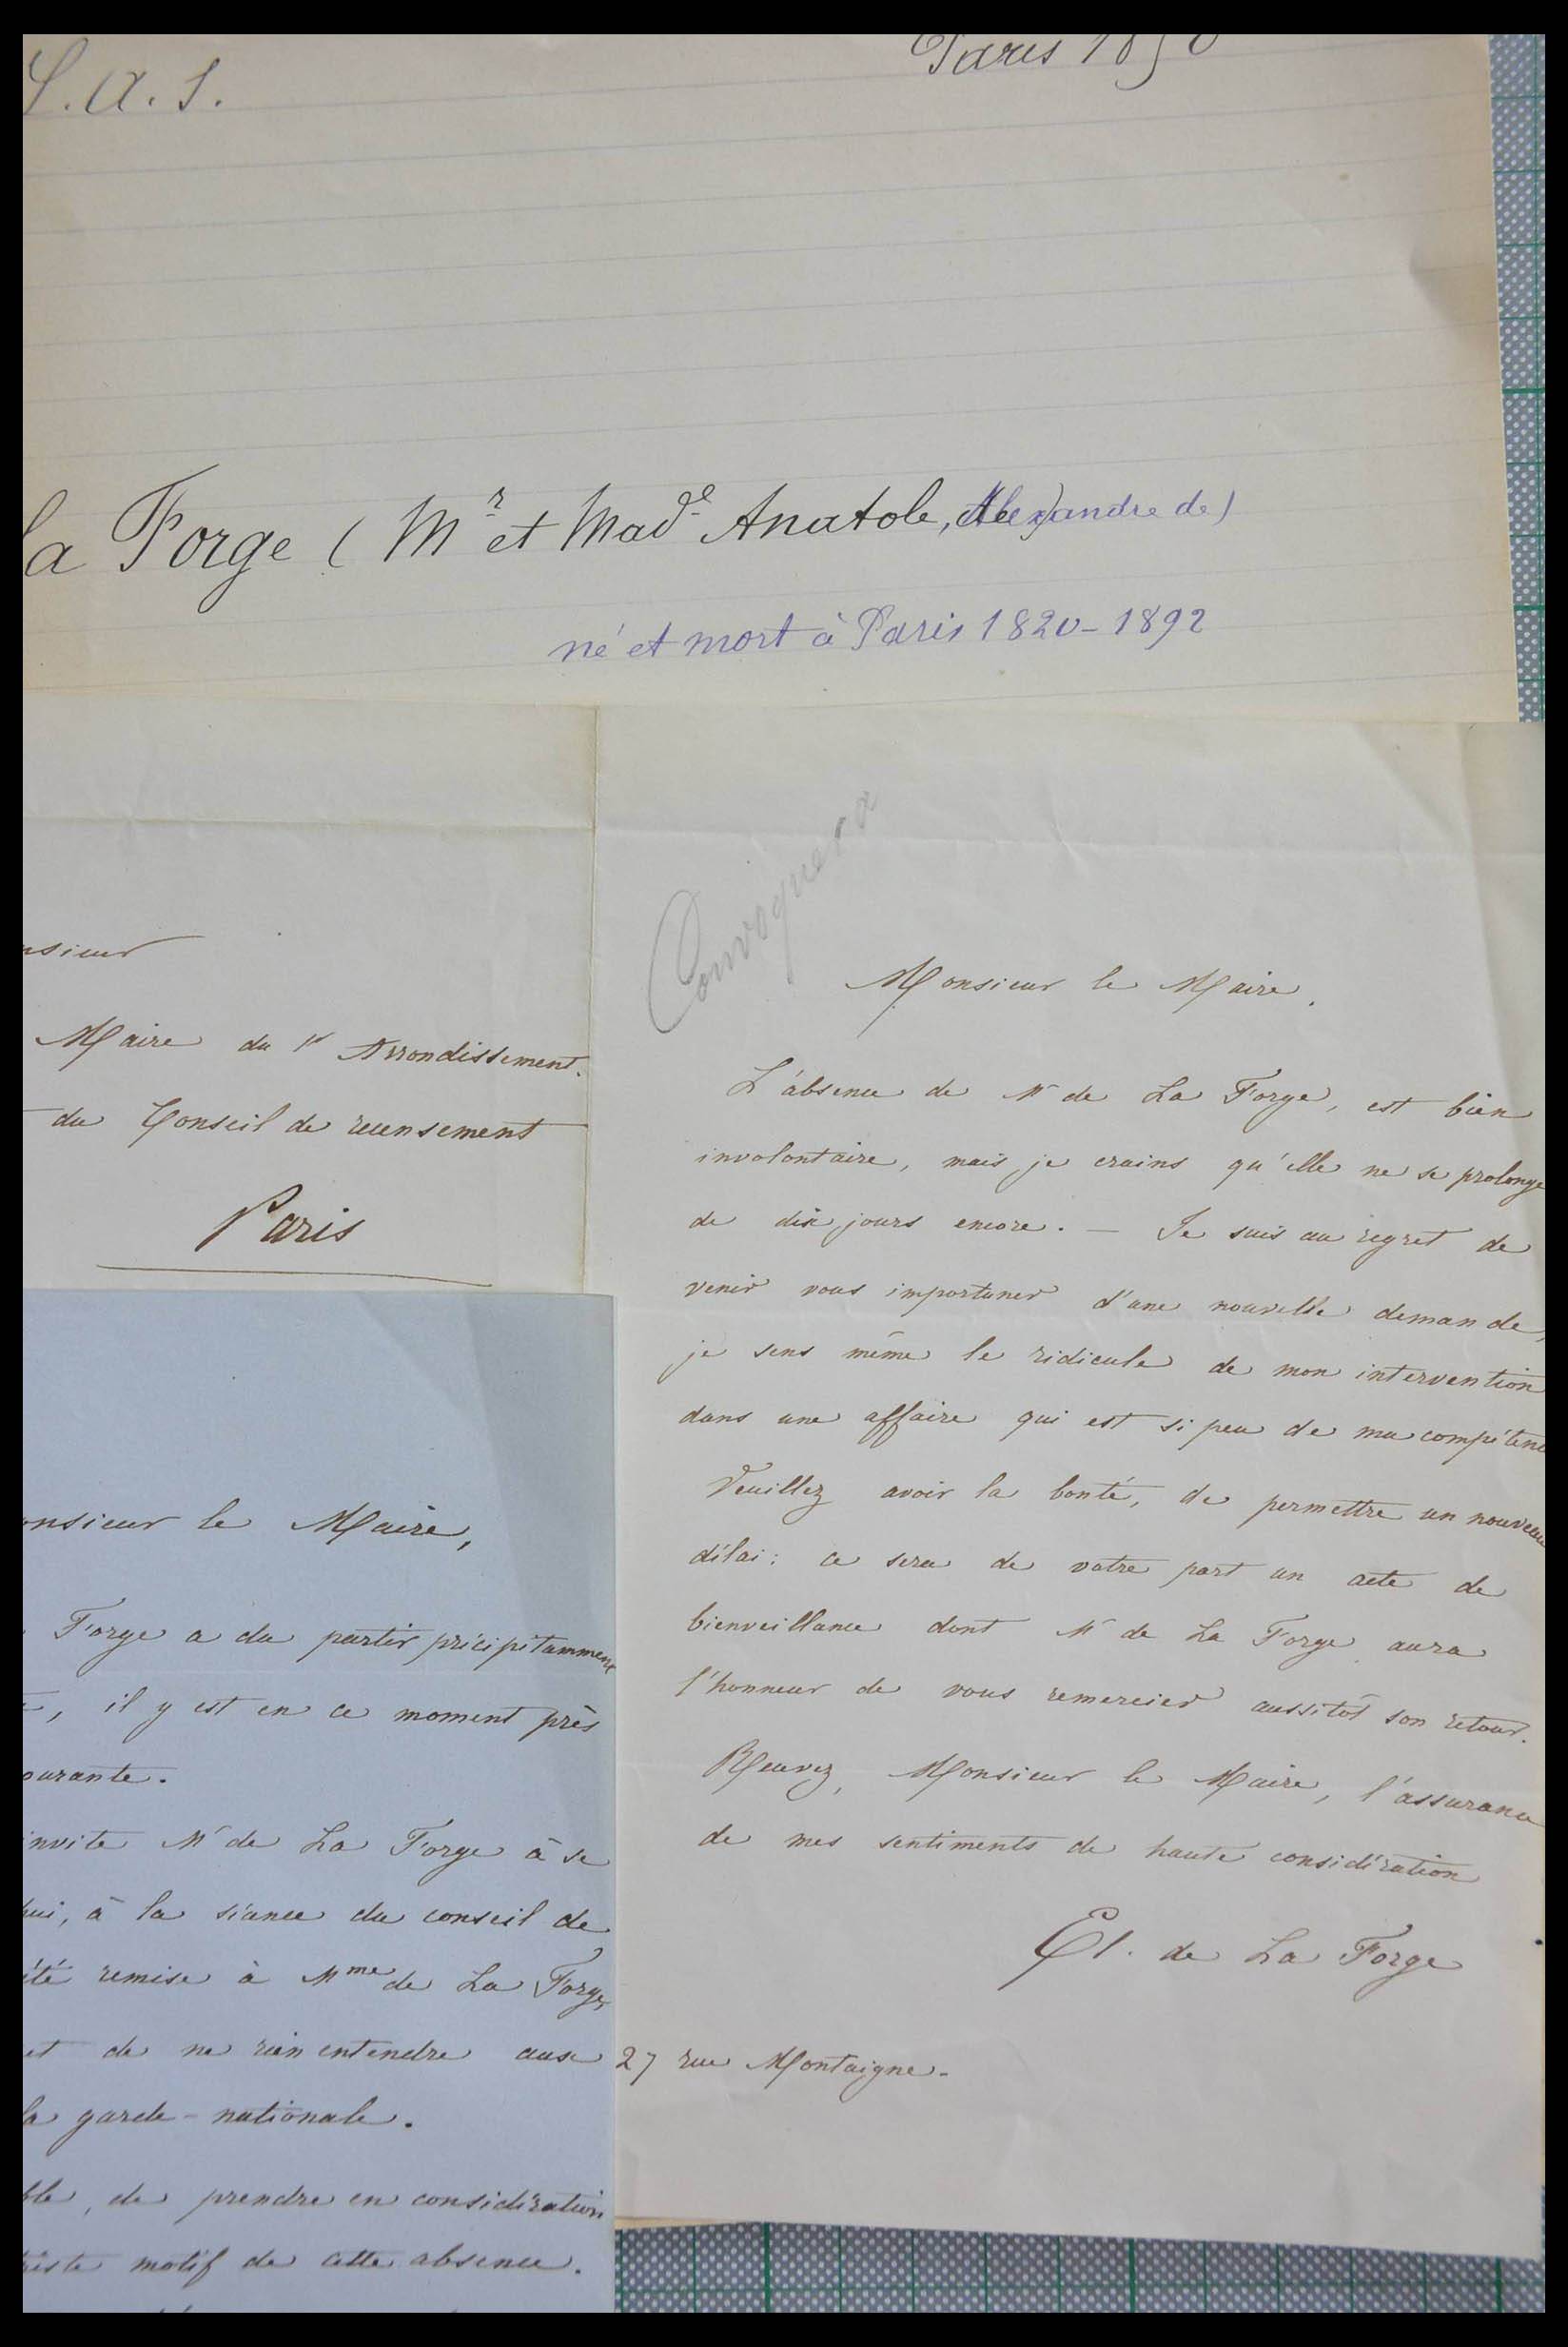 L.A.S.
Paris 1850
la Forge (Mr et Made Anatole, Alexandre de)
né et mort à Paris 1820-1892
nsieur
Maire du 1er Arrondissement.
du Conseil de recensement
Paris
Convoquera
Monsieur le Maire,
L'absence de Mr de La Forge, est bien
involontaire, mais je crains qu'elle ne se prolonge
de dix jours encore. — Je suis au regret de
venir vous importuner d'une nouvelle demande,
je sens même le ridicule de mon intervention
dans une affaire qui est si peu de ma compétence
Veuillez avoir la bonté, de permettre un nouveau
délai: ce sera de votre part un acte de
bienveillance dont Mr de La Forge aura
l'honneur de vous remercier aussitôt son retour.
Recevez, Monsieur le Maire, l'assurance
de mes sentiments de haute considération
El. de La Forge
27 rue Montaigne.
onsieur le Maire,
Forge a du partir précipitamment
, il y est en ce moment près
ourante.
invite Mr de La Forge à se
hui, à la séance du conseil de
été remise à Mme de La Forge,
et de ne rien entendre aux
la garde-nationale.
ble, de prendre en considération
triste motif de cette absence.